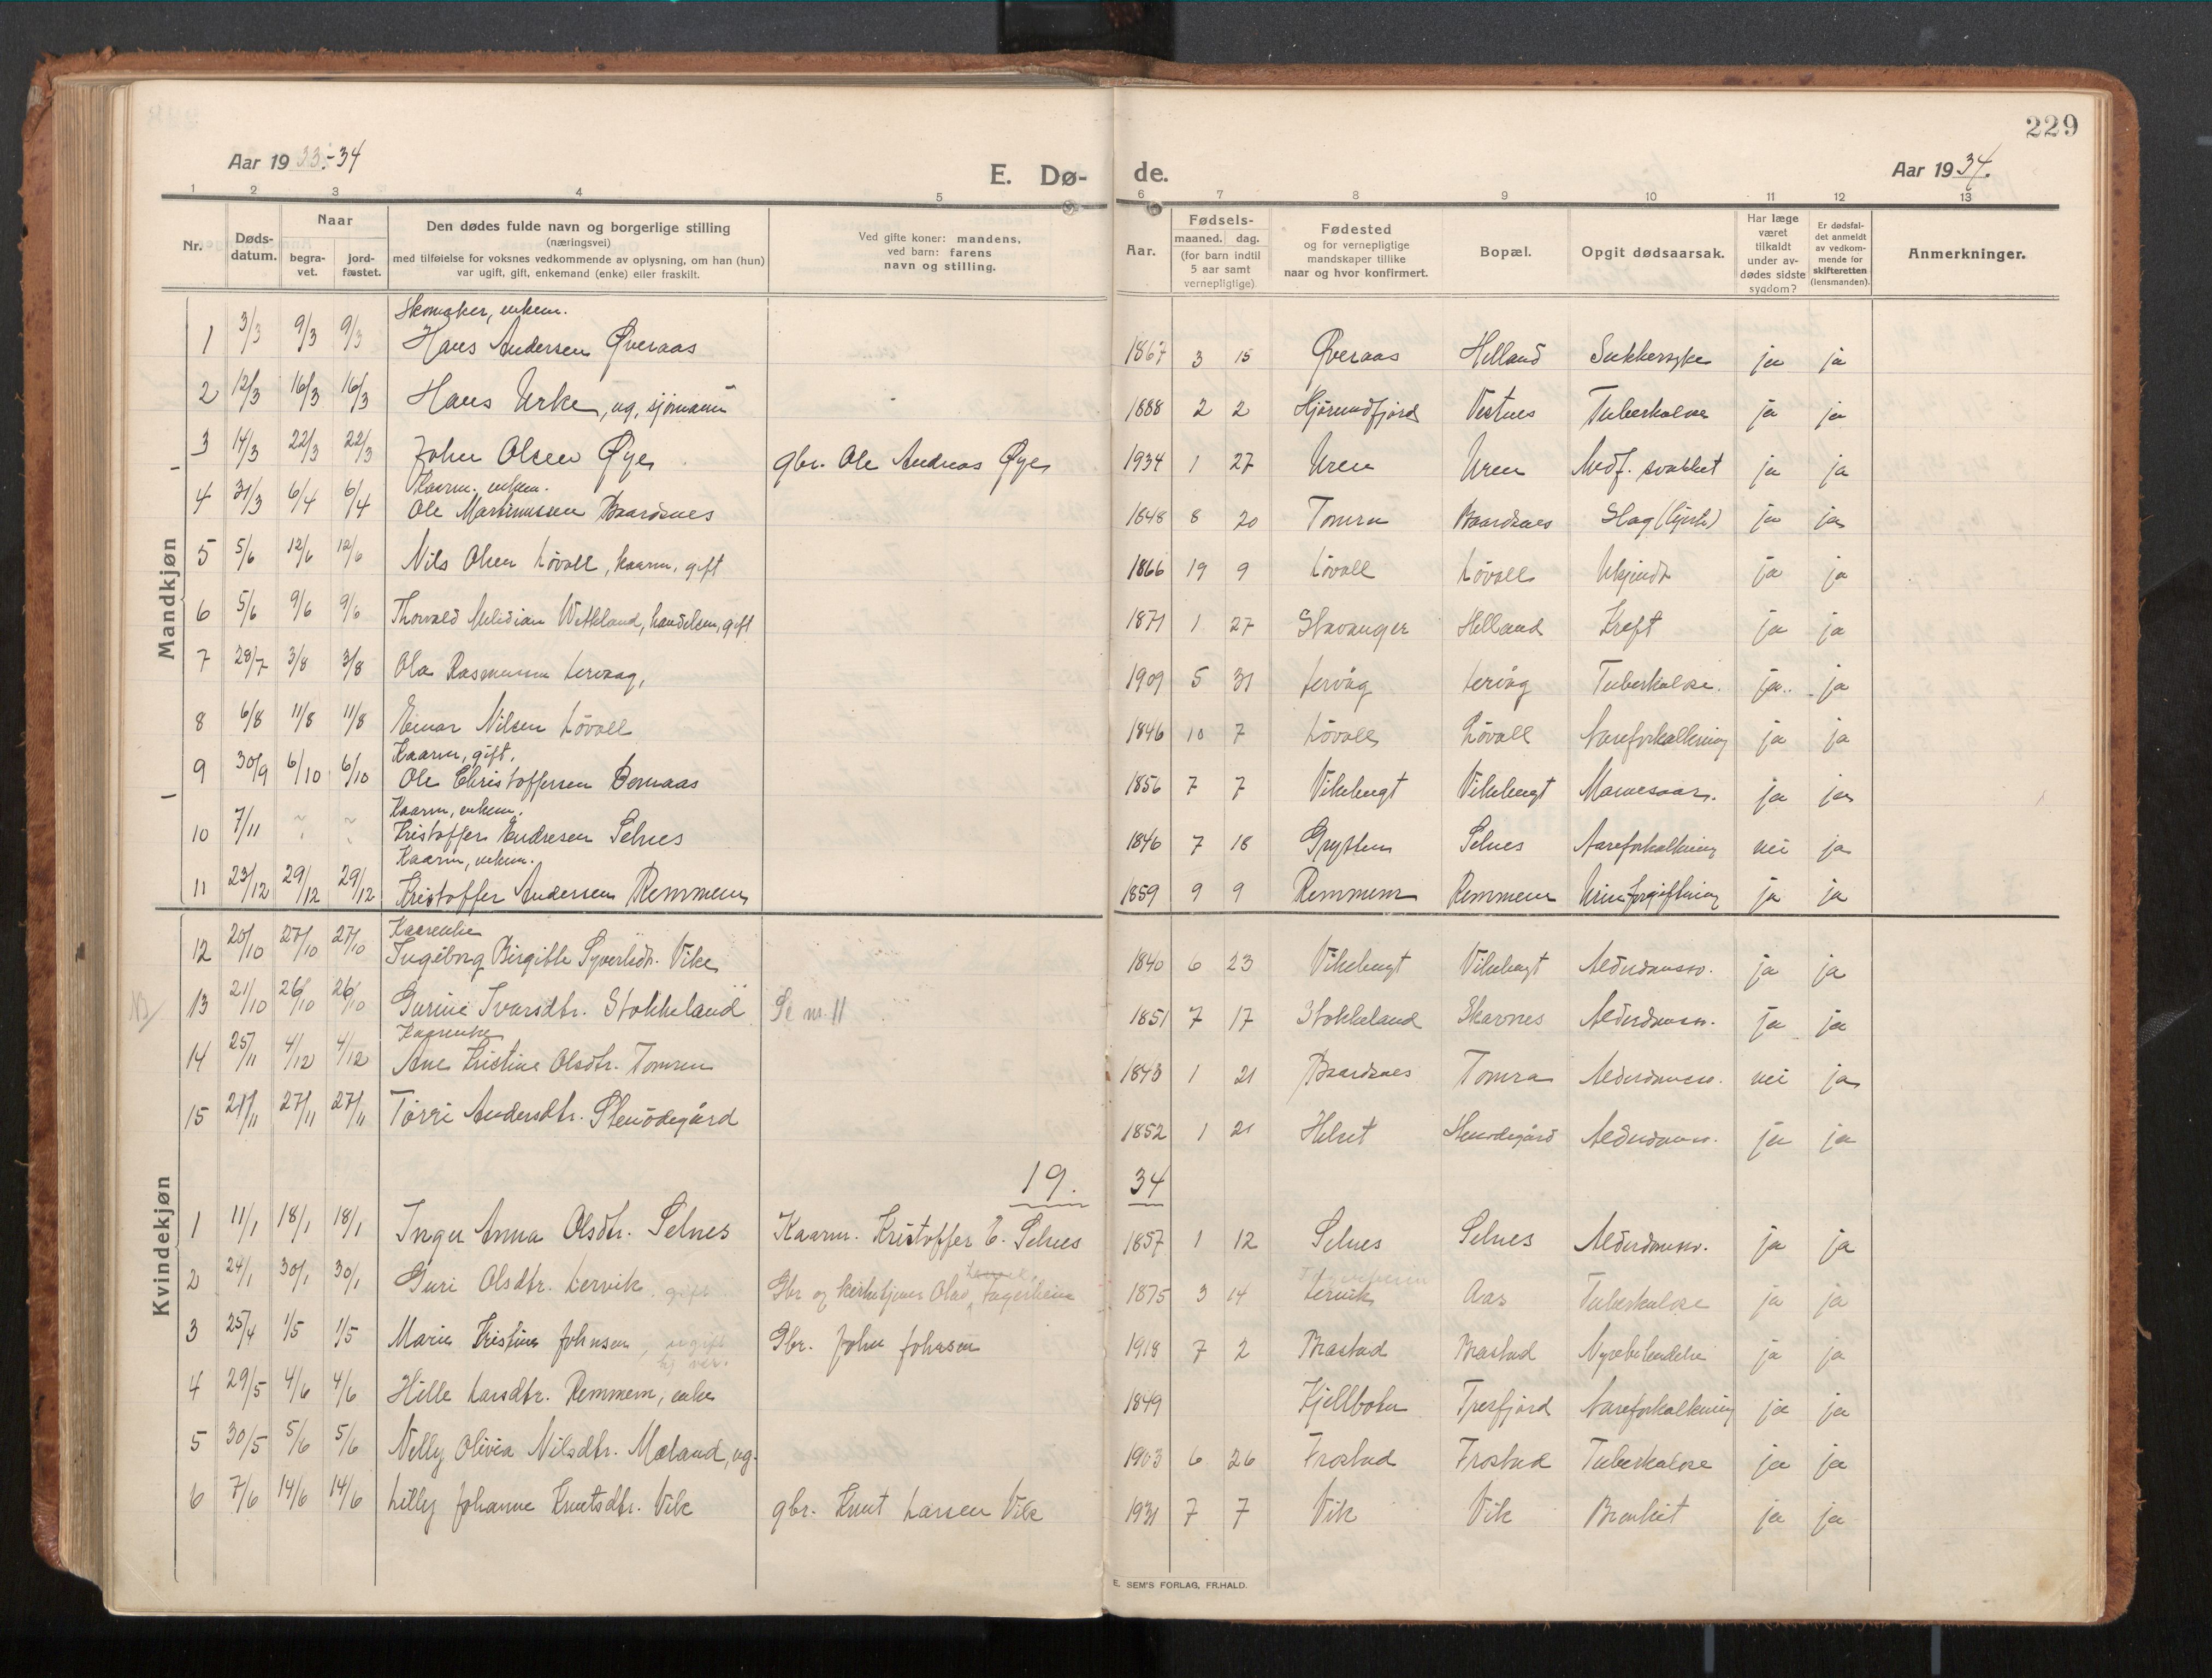 229
Aar 19 33.-34
E. Dø-
de.
Aar 19 34.
1 2 3 4 5 6 7 8 9 10 11 12 13
Nr.
Døds-
datum.
Naar
begra-
vet.
jord-
fæstet.
Den dødes fulde navn og borgerlige stilling
(næringsvei)
med tilføielse for voksnes vedkommende av oplysning, om han (hun)
var ugift, gift, enkemand (enke) eller fraskilt.
Ved gifte koner: mandens,
ved barn: farens
navn og stilling.
Aar.
Fødsels-
maaned. dag.
(for barn indtil
5 aar samt
vernepligtige)
Fødested
og for vernepligtige
mandskaper tillike
naar og hvor konfirmert.
Bopæl.
Opgit dødsaarsak.
Har læge
været
tilkaldt
under av-
dødes sidste
sygdom?
Er dødsfal-
det anmeldt
av vedkom-
mende for
skifteretten
(lensmanden).
Anmerkninger.
Mandkjøn
Skomaker, enkem.
1 3/3 9/3 9/3 Hans Andersen Øveraas 1867 3 15 Øveraas Helland Sukkersyke ja ja
2 12/3 16/3 16/3 Hans Urke, ug, sjømann 1888 2 2 Hjørundfjord Vestnes Tuberkulose ja ja
3 14/3 22/3 22/3 John Olsen Øye gbr. Ole Andreas Øye 1934 1 27 Uren Uren Medf. svakhet ja ja
Kaarm. enkem.
4 31/3 6/4 6/4 Ole Martinussen Baardsnes 1848 8 20 Tomra Baardsnes Slag (hjerte) ja ja
5 5/6 12/6 12/6 Nils Olsen Løvoll, kaarm, gift 1866 19 9 Løvoll Løvoll Ukjendt ja ja
6 5/6 9/6 9/6 Thorvald Melidian Wetteland, handelsm, gift 1871 1 27 Stavanger Helland Kreft ja ja
7 28/7 3/8 3/8 Ola Rasmussen Lervaag, 1909 5 31 Lervåg Lervåg Tuberkulose. ja.. ja
8 6/8 11/8 11/8 Einar Nilsen Løvoll 1846 10 7 Løvoll Løvoll Aareforkalkning ja ja
Kaarm, gift.
9 30/9 6/10 6/10 Ole Christoffersen Bomaas 1856 7 7 Vikebugt Vikebugt Mavesaar. ja ja
Kaarm, enkem.
10 7/11 Kristoffer Endresen Selnes 1846 7 18 Selnes Aareforkalkning nei ja
Kaarm, enkem.
11 23/12 29/12 29/12 Kristoffer Andersen Remmem 1859 9 9 Remmem Remmem Urinforgiftning ja ja
Kaarenke
12 20/10 27/10 27/10 Ingeborg Birgitte Syverdt. Vike 1840 6 23 Vikebugt Vikebugt Alderdomssv. ja ja
13 21/10 26/10 26/10 Gurine Ivarsdtr. Stokkeland Se nr. 11 1851 7 17 Stokkeland Skarnes Alderdomssv. ja ja
Kaarenke
14 25/11 4/12 4/12 Ane Kristine Olsdtr. Tomren 1843 1 21 Baardsnes Tomra Alderdomssv. nei ja
15 21/11 27/11 27/11 Torri Andersdtr. Stenødegård 1852 1 21 Helset Stenødegård Alderdomssv. ja ja
19. 34
Kvindekjøn
1 11/1 18/1 18/1 Inger Anna Olsdtr. Selnes Kaarm. Kristoffer E. Selnes 1857 1 12 Selnes Selnes Alderdomssv. ja ja
2 24/1 30/1 30/1 Guri Olsdtr. Lervik gift Gbr og kirketjener Olav Fagerheim 1875 3 14 Lervik Aas Tuberkulose ja ja
3 25/4 1/5 1/5 Marie Kristine Johnsen, ugift Gbr. John Johnsen 1918 7 2 Brastad Brastad Nyrebetendelse ja ja
4 29/5 4/6 4/6 Hille Larsdtr. Remmem, enke 1849 Kjellbotn Tresfjord Aareforkalkning ja ja
5 30/5 5/6 5/6 Nelly Olivia Nilsdtr. Moland, ug. 1903 6 26 Frostad Frostad Tuberkulose ja ja
6 7/6 14/6 14/6 Lilly Johanne Knutsdtr. Vik gbr. Knut Larsen Vik 1931 7 7 Vik Vik Bronkit ja ja
E. SEM'S FORLAG, FR.HALD.